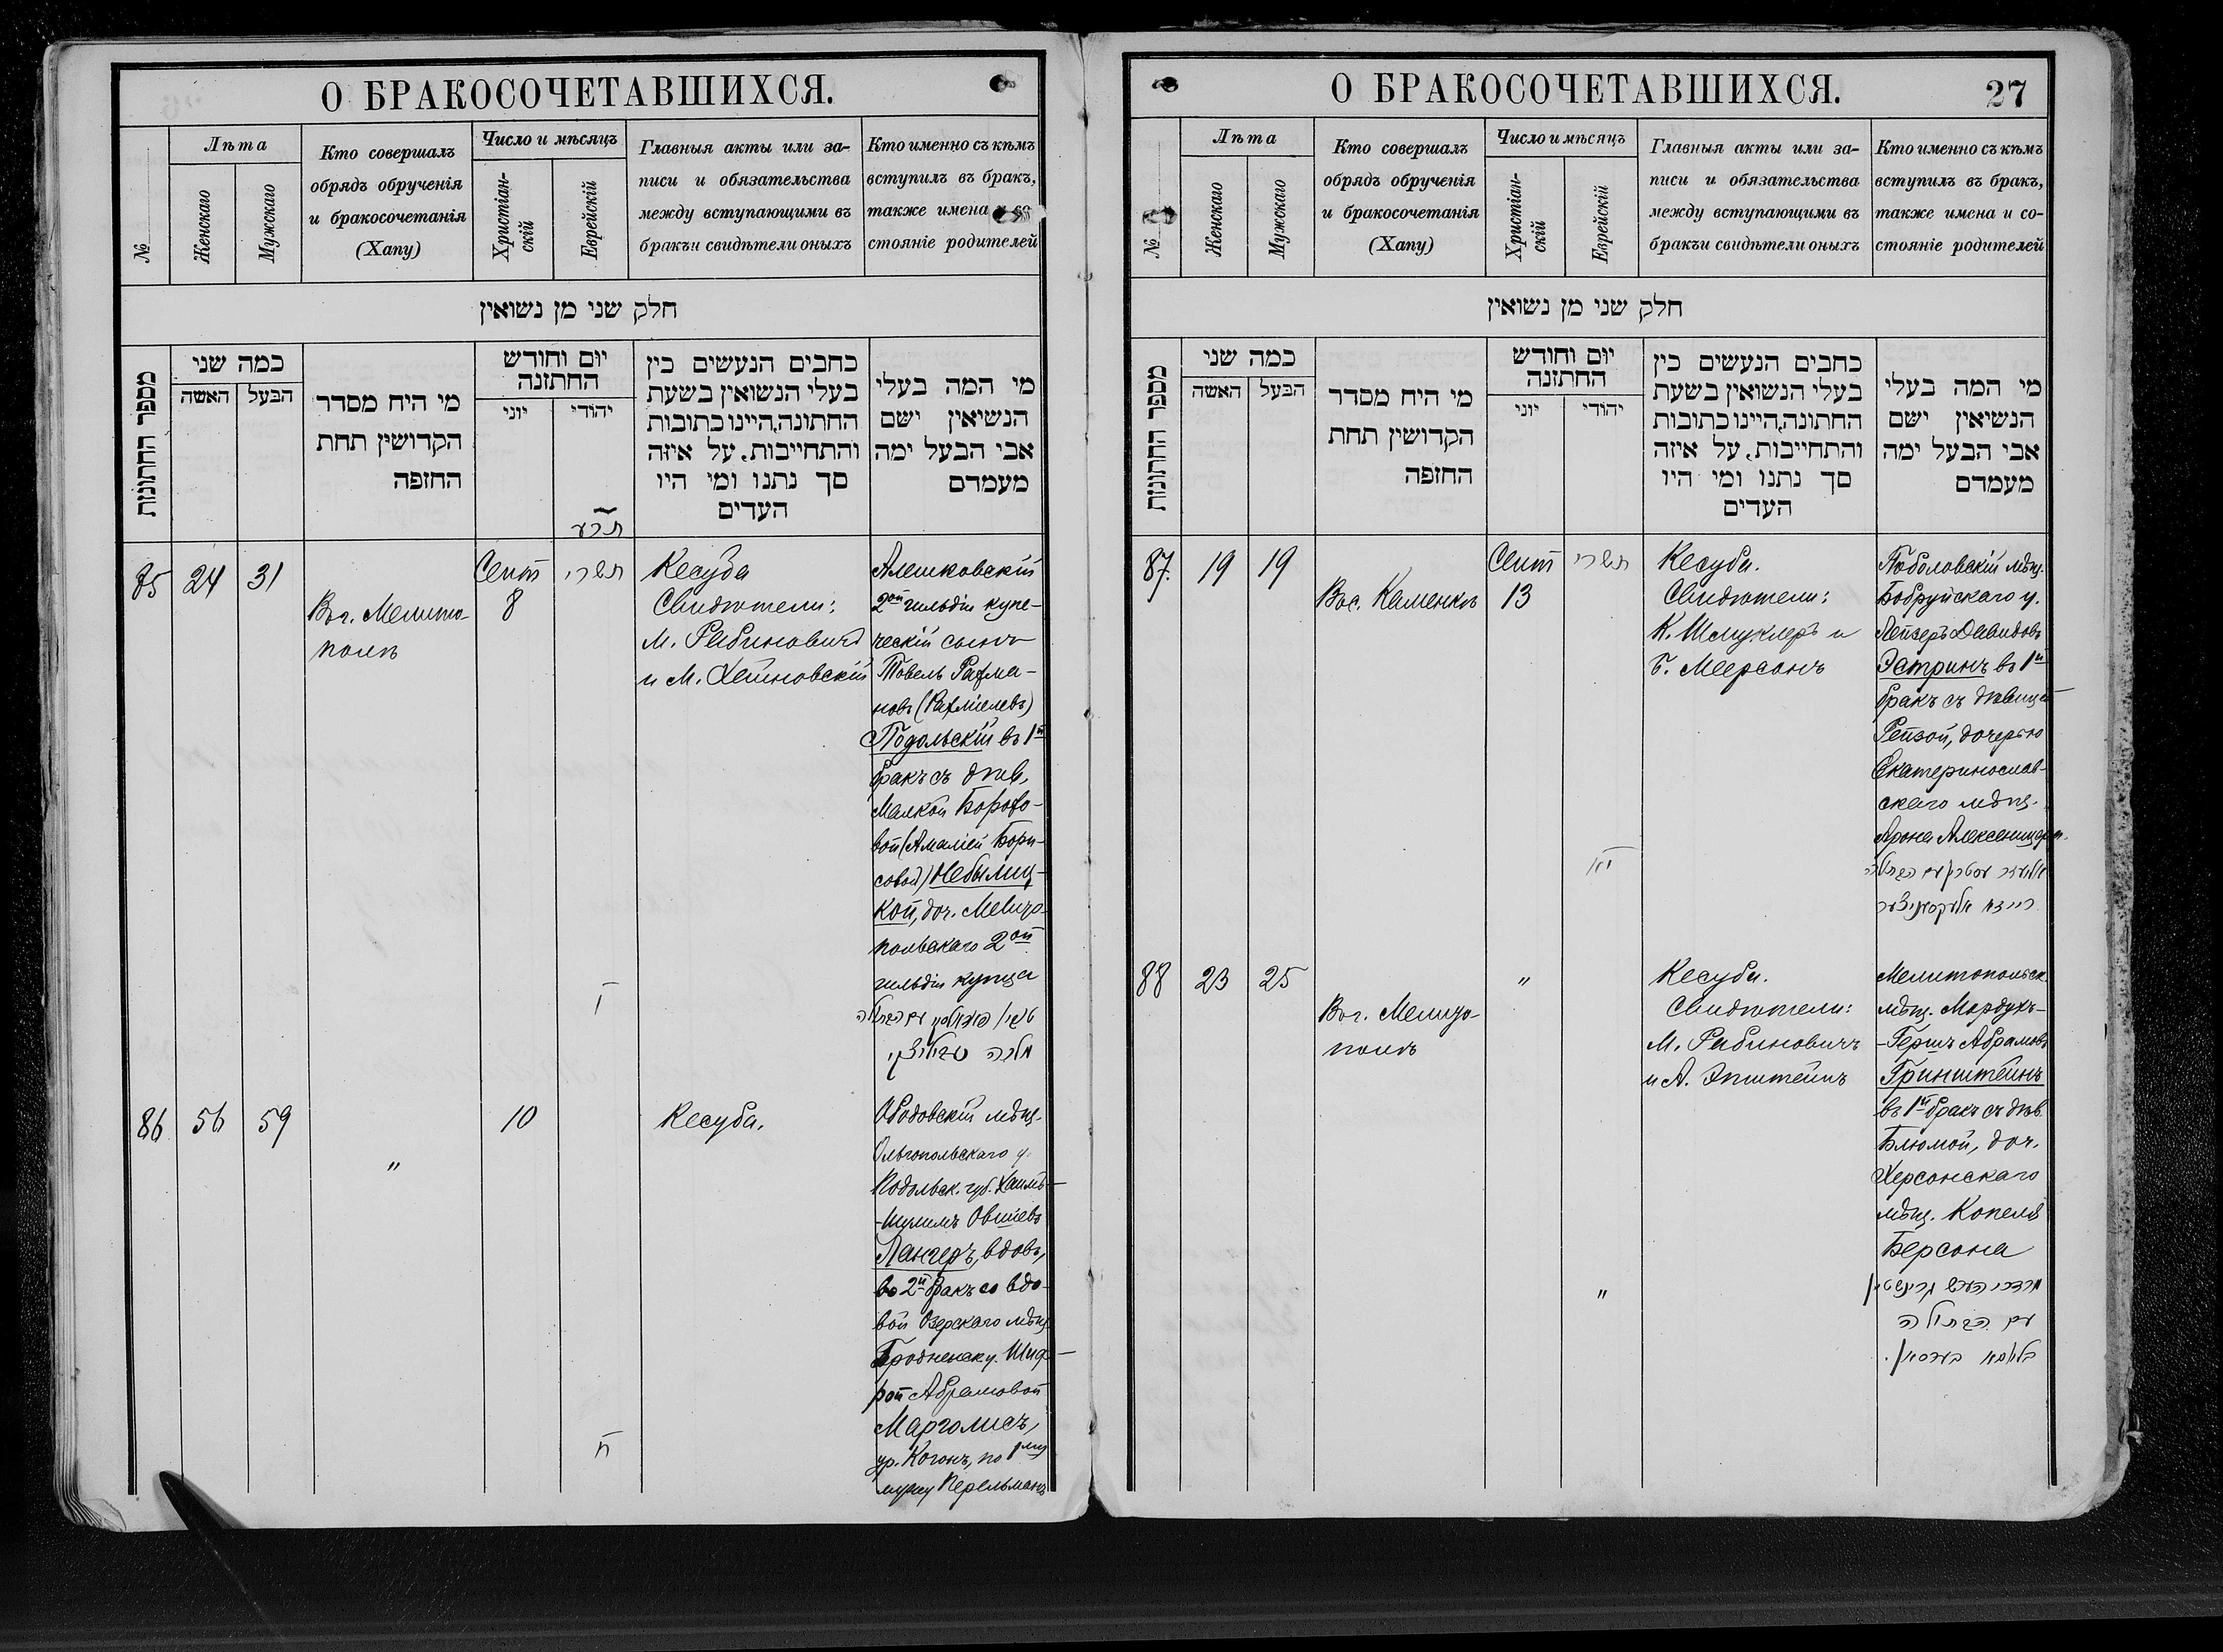 О БРАКОСОЧЕТАВШИХСЯ.
№
Лѣта
Женскаго
Мужскаго
Кто совершалъ
обрядъ обрученія
и бракосочетанія
(Хапу)
Число и мѣсяцъ
Христіан-
скій
Еврейскій
Главныя акты или за-
писи и обязательства
между вступающими въ
бракъ и свидѣтели оныхъ
Кто именно съ кѣмъ
вступилъ въ бракъ,
также имена и со-
стояніе родителей
חלק שני מן נשואין
מספר החתונות
כמה שני
האשה
הבעל
מי היח מסדר
הקדושין תחת
החופה
יום וחודש
החתונה
יוני
יהודי
תרע
כתבים הנעשים בין
בעלי הנשואין בשעת
החתונה, היינו כתובות
והתחייבות, על איזה
סך נתנו ומי היו
העדים
מי המה בעלי
הנשיאין ישם
אבי הבעל ימה
מעמדם
85
24
31
Въ г. Мелито-
полѣ
Сент
8
תשרי
ד
Кесуба
Свидѣтели:
М. Рабиновичъ
и М. Хейновскій
Алешковскій
2ой гильдіи купе-
ческій сынъ
Товель Рахма-
новъ (Рахміелевъ)
Подольскій въ 1й
бракъ съ дѣв.
Малкой Борохо-
вой (Амаліей Бори-
совой) Небылиц-
кой, доч. Мелито-
польскаго 2ой
гильдіи купца
86
56
59
"
10
ה
Кесуба.
Ободовскій мѣщ.
Ольгопольскаго у.
Подольск. губ. Хаимъ-
-Шулимъ Овшіевъ
Лангеръ, вдовъ,
во 2й бракъ со вдо-
вой Озерскаго мѣщ.
Гродненск. у. Шиф-
рой Абрамовой
Марголисъ,
ур. Коганъ, по 1му
мужу Перельманъ
О БРАКОСОЧЕТАВШИХСЯ.
27
№
Лѣта
Женскаго
Мужскаго
Кто совершалъ
обрядъ обрученія
и бракосочетанія
(Хапу)
Число и мѣсяцъ
Христіан-
скій
Еврейскій
Главныя акты или за-
писи и обязательства
между вступающими въ
бракъ и свидѣтели оныхъ
Кто именно съ кѣмъ
вступилъ въ бракъ,
также имена и со-
стояніе родителей
חלק שני מן נשואין
מספר החתונות
כמה שני
האשה
הבעל
מי היח מסדר
הקדושין תחת
החופה
יום וחודש
החתונה
יוני
יהודי
כתבים הנעשים בין
בעלי הנשואין בשעת
החתונה, היינו כתובות
והתחייבות, על איזה
סך נתנו ומי היו
העדים
מי המה בעלי
הנשיאין ישם
אבי הבעל ימה
מעמדם
87.
19
19
Въ с. Каменкѣ
Сент
13
תשרי
Кесуба.
Свидѣтели:
К. Шмуклеръ и
Б. Меерсонъ
Поболовскій мѣщ.
Бобруйскаго у.
Лейзеръ Давидовъ
Эстринъ въ 1й
бракъ съ дѣвицей
Рейзой, дочерью
Екатеринослав-
скаго мѣщ.
Арона Алексеницера.
אליעזר עסטרין עם הבתולה
רייזא אלעקסעניצער
88
23
25
Въ г. Мелито-
полѣ
"
"
Кесуба.
Свидѣтели:
М. Рабиновичъ
и А. Эпштейнъ
Мелитопольск.
мѣщ. Мордухъ-
-Гершъ Абрамовъ
Гринштейнъ
въ 1й бракъ съ дѣв.
Блюмой, доч.
Херсонскаго
мѣщ. Копеля
Берсона
מרדכי הערש גרינשטיין
עם הבתולה
בלומא בערסאן.